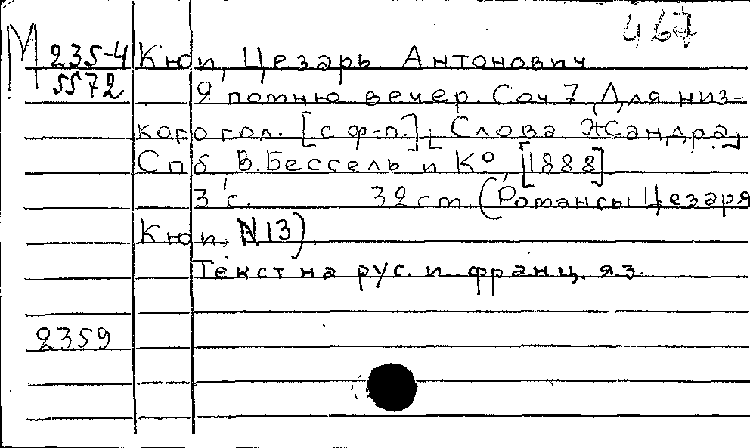 467
М 235-4 Кюи, Цезарь Антонович
5572 Я помню вечер. Соч 7 Для низ-
кого гол. [с ф-п.] [Слова Жандра]
Спб В. Бессель и Ко, [1888]
3 с. 32 cm. (Романсы Цезаря
Кюи, N 13)
Текст на рус. и франц. яз.
2359